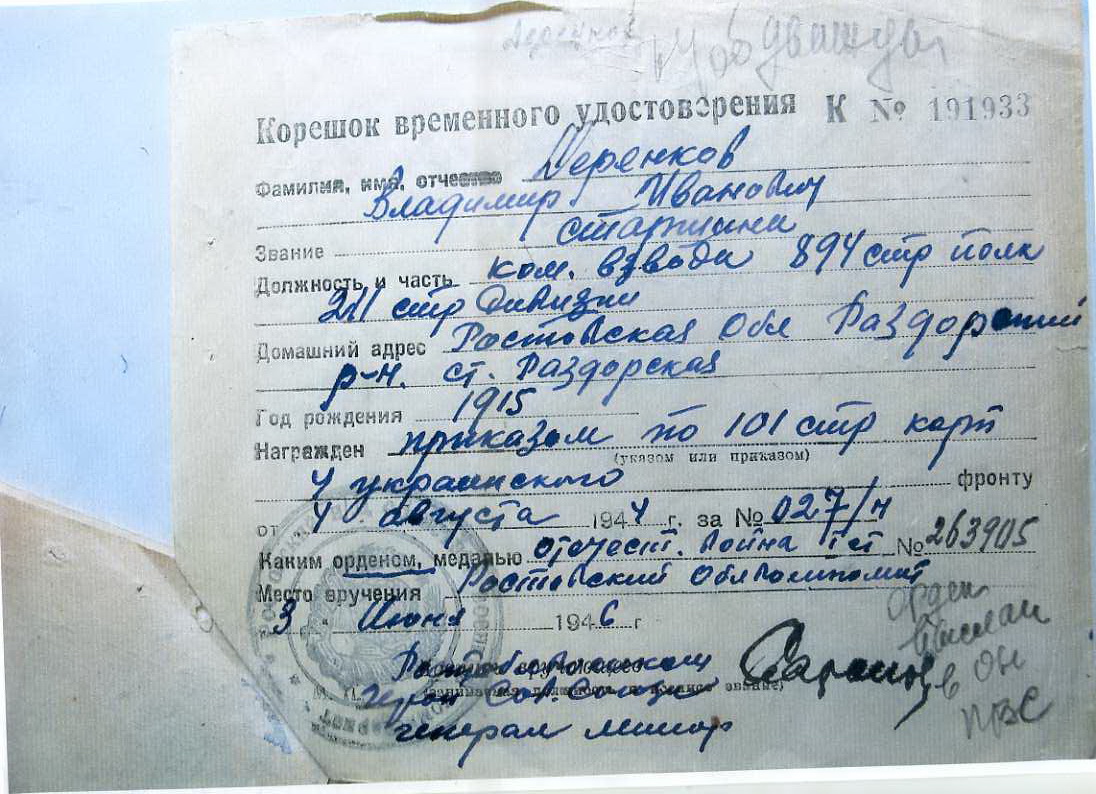 дважды
Корешок временного удостоверения К № 191933
Фамилия, имя, отчество Деренков
Владимир Иванович
Звание старшина
Должность и часть ком. взвода 894 стр полк
211 стр Дивизии
Домашний адрес Ростовская Обл Раздорский
р-н. ст. Раздорская
Год рождения 1915
Награжден приказом по 101 стр корп
(указом или приказом)
4 украинского фронту
от „4“ августа 1944 г. за № 027/н
Каким орденом, медалью отечест. война I ст № 263905
Место вручения Ростовский Облвоенкомат
„3“ Июня 1946 г
Орден
выслан
в Он
ПВС
М. П.
Герой Сов. Союза
генерал майор